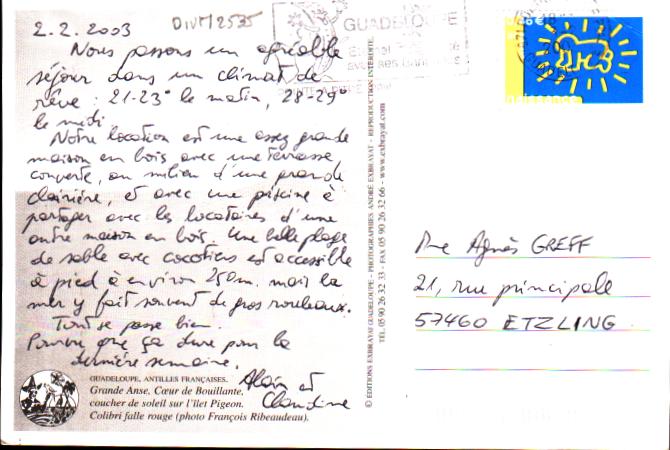 2.2.2003
DIVM/2535
Nous passons un agréable
séjour dans un climat de
rêve : 21-23° le matin, 28-29°
le midi
Notre location est une assez grande
maison en bois avec une terrasse
couverte, au milieu d'une grande
clairière, et avec une piscine à
partager avec les locataires d'une
autre maison en bois. Une belle plage
de sable avec cocotiers est accessible
à pied à environ 250m. mais la
mer y fait souvent de gros rouleaux.
Tout se passe bien.
Pourvu que ça dure pour la
dernière semaine.
Alain et
Claudine
GUADELOUPE, ANTILLES FRANÇAISES.
Grande Anse, Cœur de Bouillante,
coucher de soleil sur l'îlet Pigeon.
Colibri falle rouge (photo François Ribeaudeau).
© EDITIONS EXBRAYAT GUADELOUPE – PHOTOGRAPHIES ANDRÉ EXBRAYAT – REPRODUCTION INTERDITE.
TÉL. 05 90 26 32 33 - FAX 05 90 26 32 66 - www.exbrayat.com
GUADELOUPE
NAISSANCE
Agnès GREFF
21, rue principale
57460 ETZLING